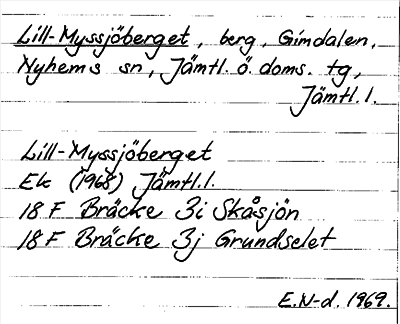 Lill-Myssjöberget, berg, Gimdalen,
Nyhems sn, Jämtl. ö. doms. tg,
Jämtl.l.
Lill-Myssjöberget
Ek (1968) Jämtl.l.
18 F Bräcke 3i Skåsjön
18 F Bräcke 3j Grundselet
E.N-d. 1969.